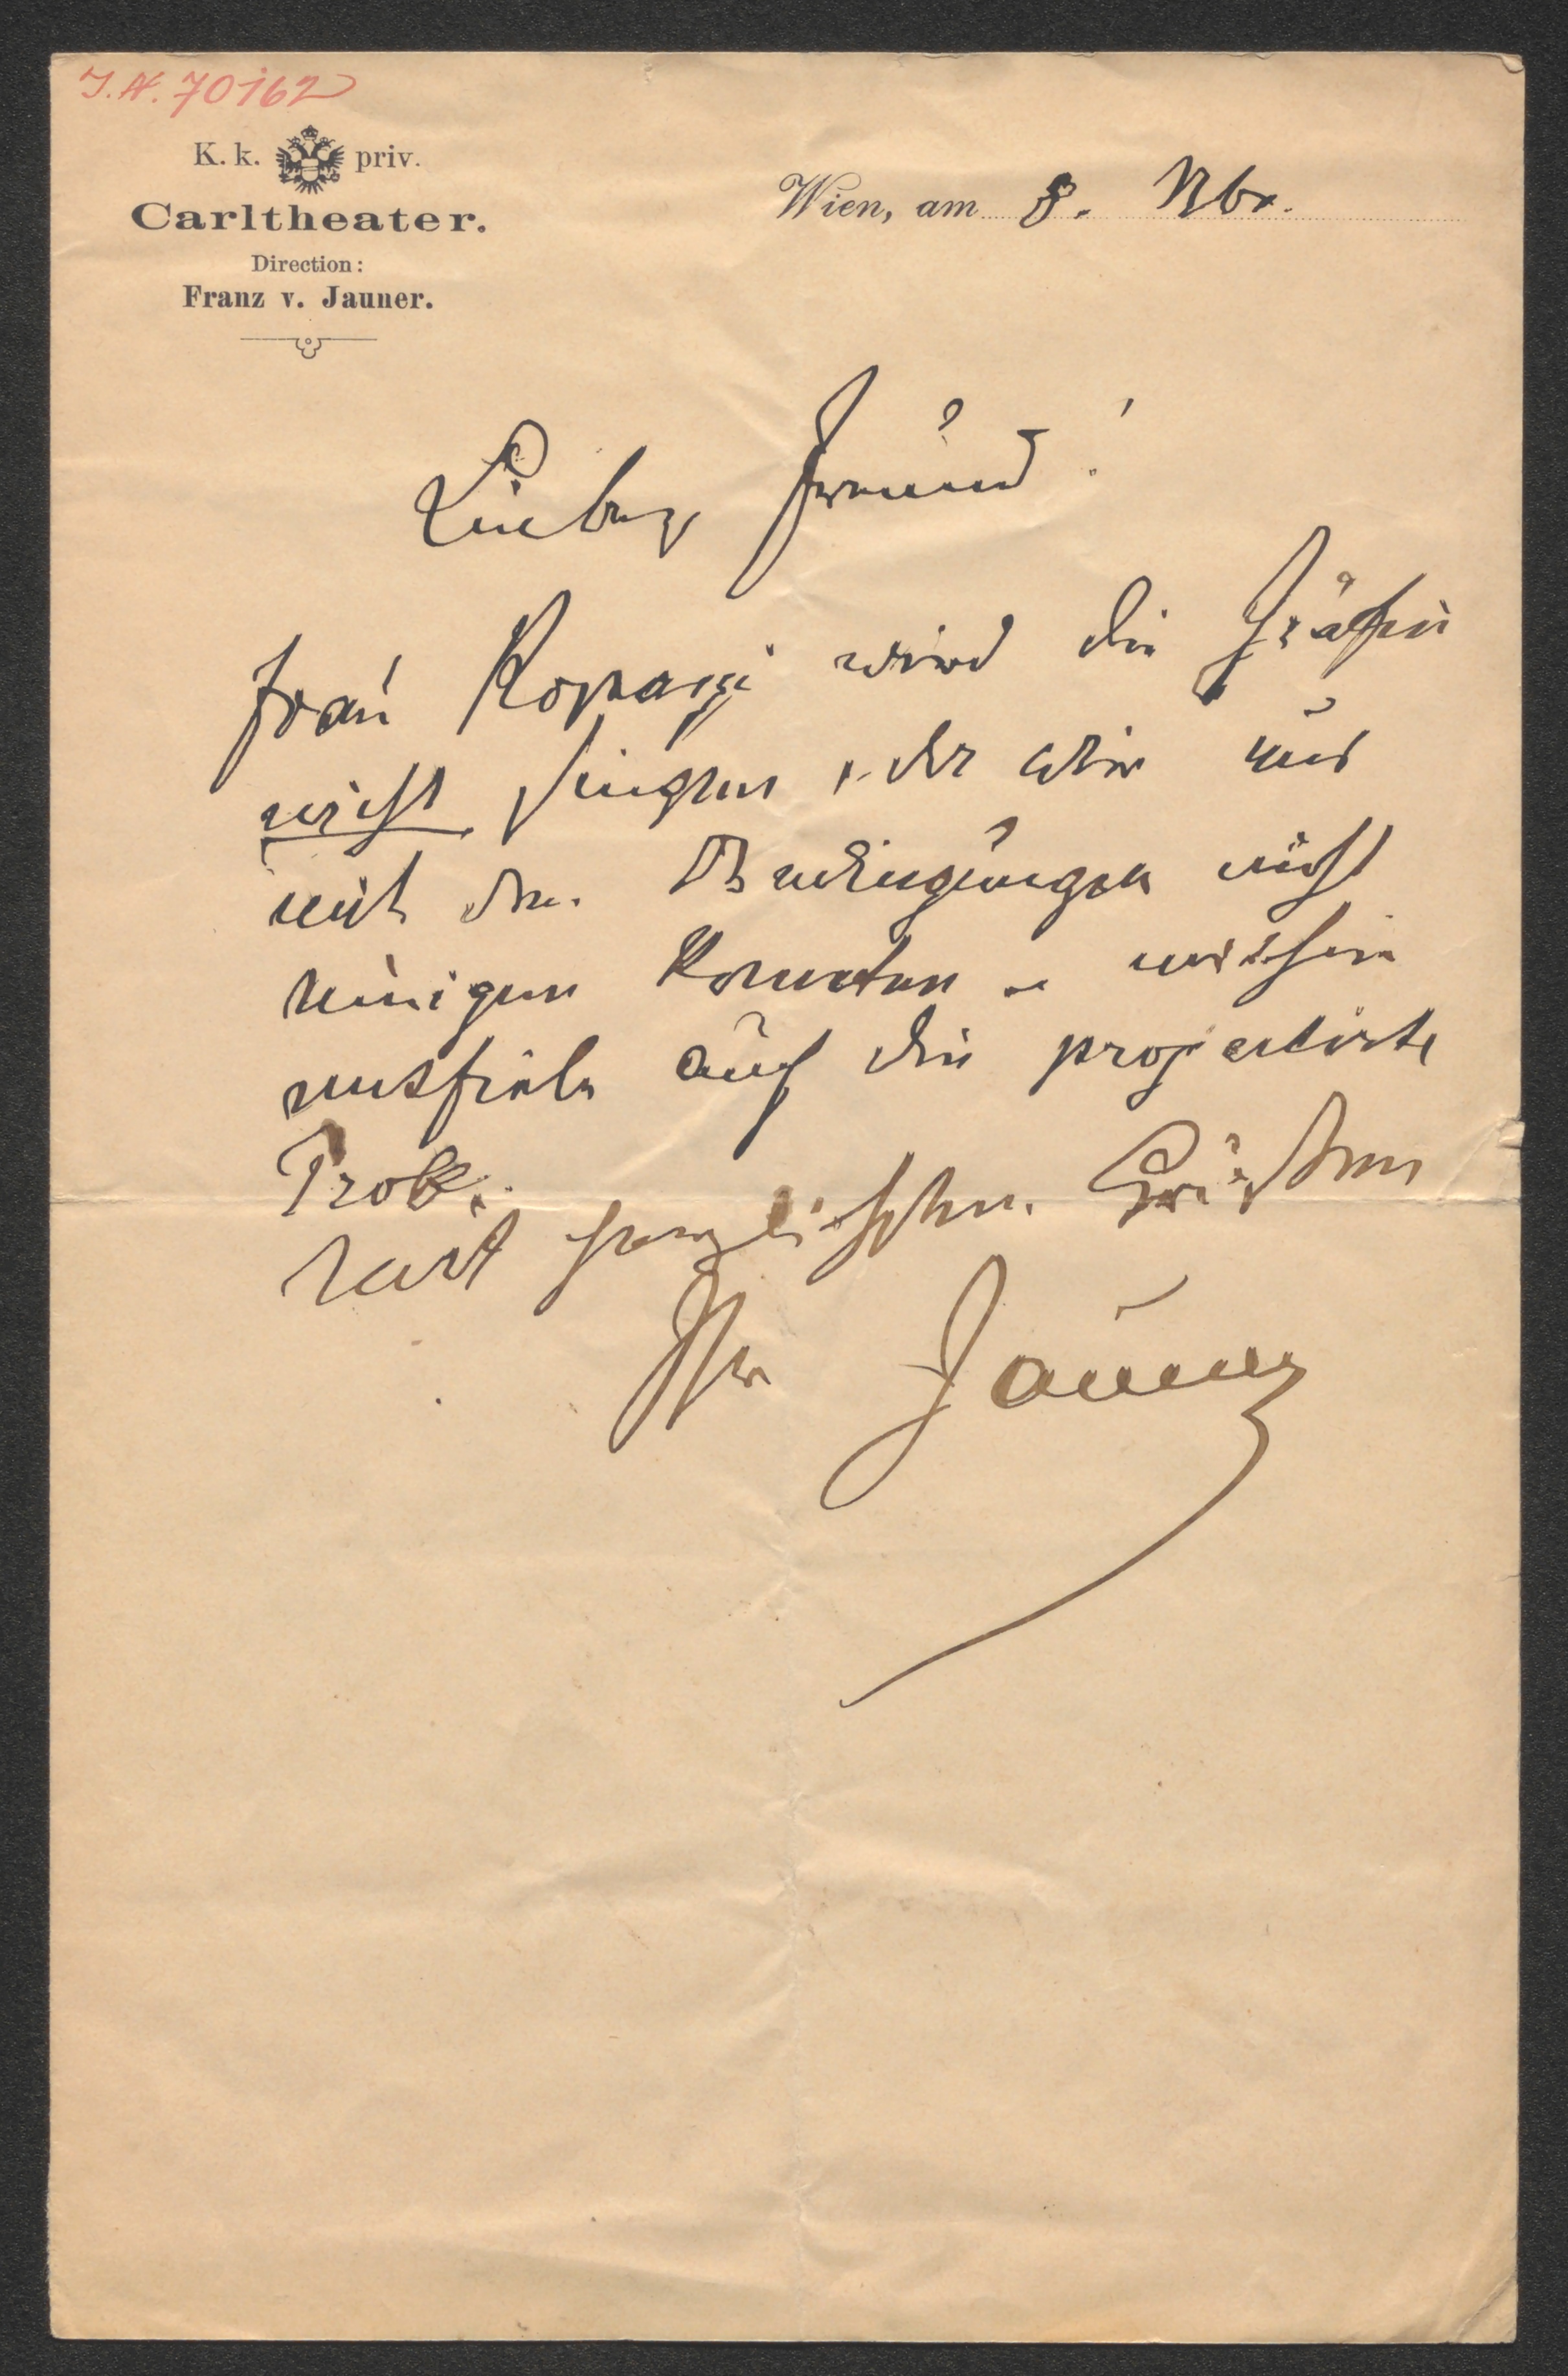 J. N. 70162
K. k. priv.
Carltheater.
Direction:
Franz v. Jauner.
Wien, am 8. Nbr.
Lieber Freund!
Frau Kopacsi wird die Gräfin
nicht singen, da wir uns
mit den Bedingungen nicht
einigen konnten u mithin
entfiele auch die projectirte
Probe.
Mit herzlichen Grüßen
Ihr Jauner